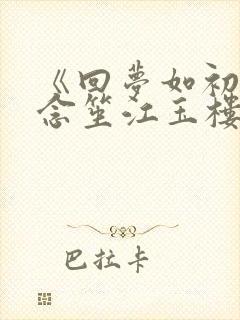 《回夢如初
念笙江玉樓
巴拉卡